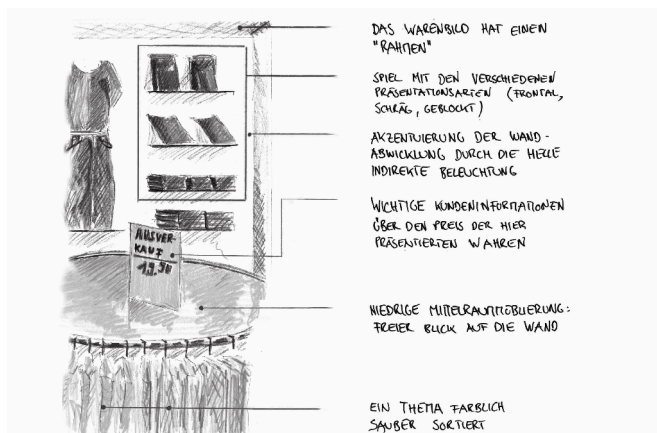 DAS WARENBILD HAT EINEN
"RAHMEN"
SPIEL MIT DEN VERSCHIEDENEN
PRÄSENTATIONSARTEN (FRONTAL,
SCHRÄG, GEBLOCKT)
AKZENTUIERUNG DER WAND-
ABWICKLUNG DURCH DIE HELLE
INDIREKTE BELEUCHTUNG
WICHTIGE KUNDENINFORMATIONEN
ÜBER DEN PREIS DER HIER
PRÄSENTIERTEN WAHREN
AUSVER-
KAUF
19.90
NIEDRIGE MITTELRAUMMÖBLIERUNG:
FREIER BLICK AUF DIE WAND
EIN THEMA FARBLICH
SAUBER SORTIERT